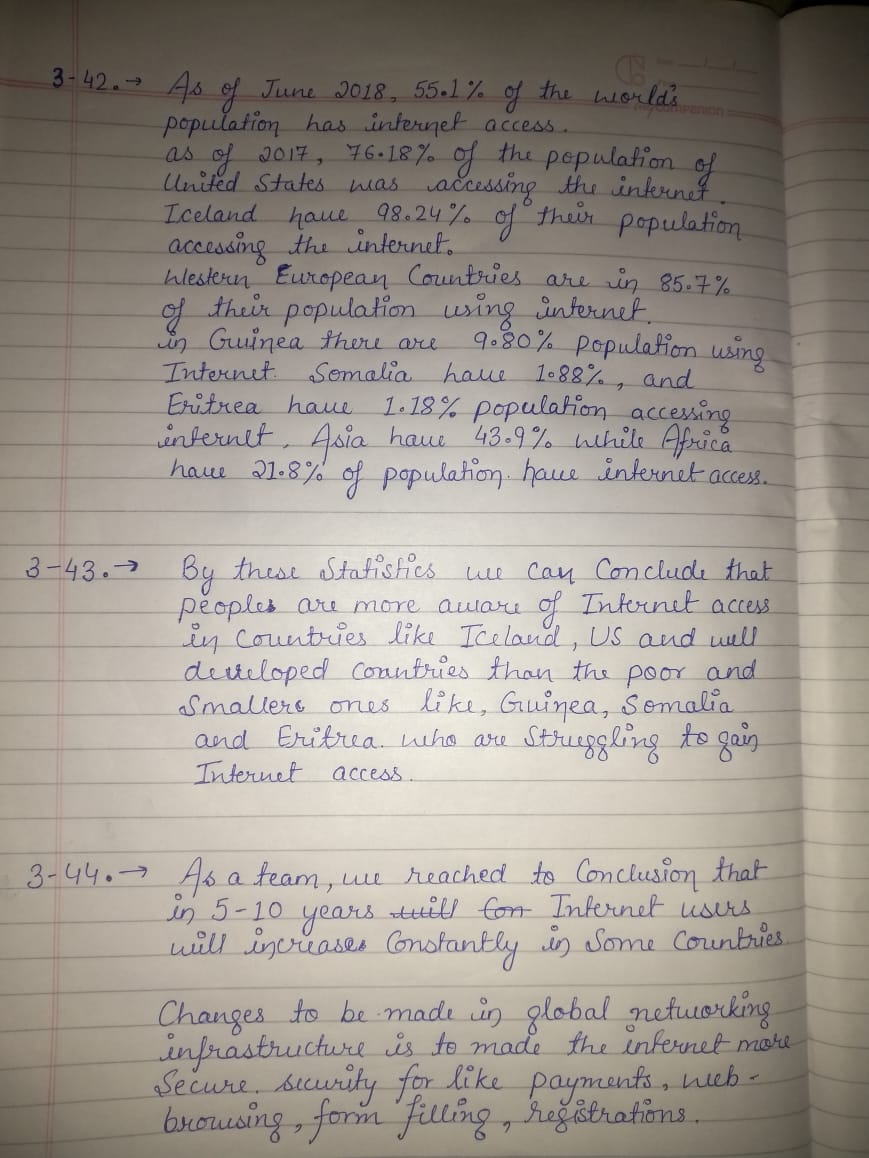 3-42.→ As of June 2018, 55.1% of the world's
population has internet access.
as of 2017, 76.18% of the population of
United States was accessing the internet.
Iceland have 98.24% of their population
accessing the internet.
Western European Countries are in 85.7%
of their population using internet.
in Guinea there are 9.80% population using
Internet. Somalia have 1.88%, and
Eritrea have 1.18% population accessing
internet, Asia have 43.9% while Africa
have 21.8% of population. have internet access.
3-43.→ By these Statistics we can Conclude that
peoples are more aware of Internet access
in Countries like Iceland, US and well
developed Countries than the poor and
Smallers ones like, Guinea, Somalia
and Eritrea. who are Struggling to gain
Internet access.
3-44.→ As a team, we reached to Conclusion that
in 5-10 years will con Internet users
will increases Constantly in Some Countries.
Changes to be made in global networking
infrastructure is to made the internet more
Secure. security for like payments, web-
browsing, form filling, registrations.